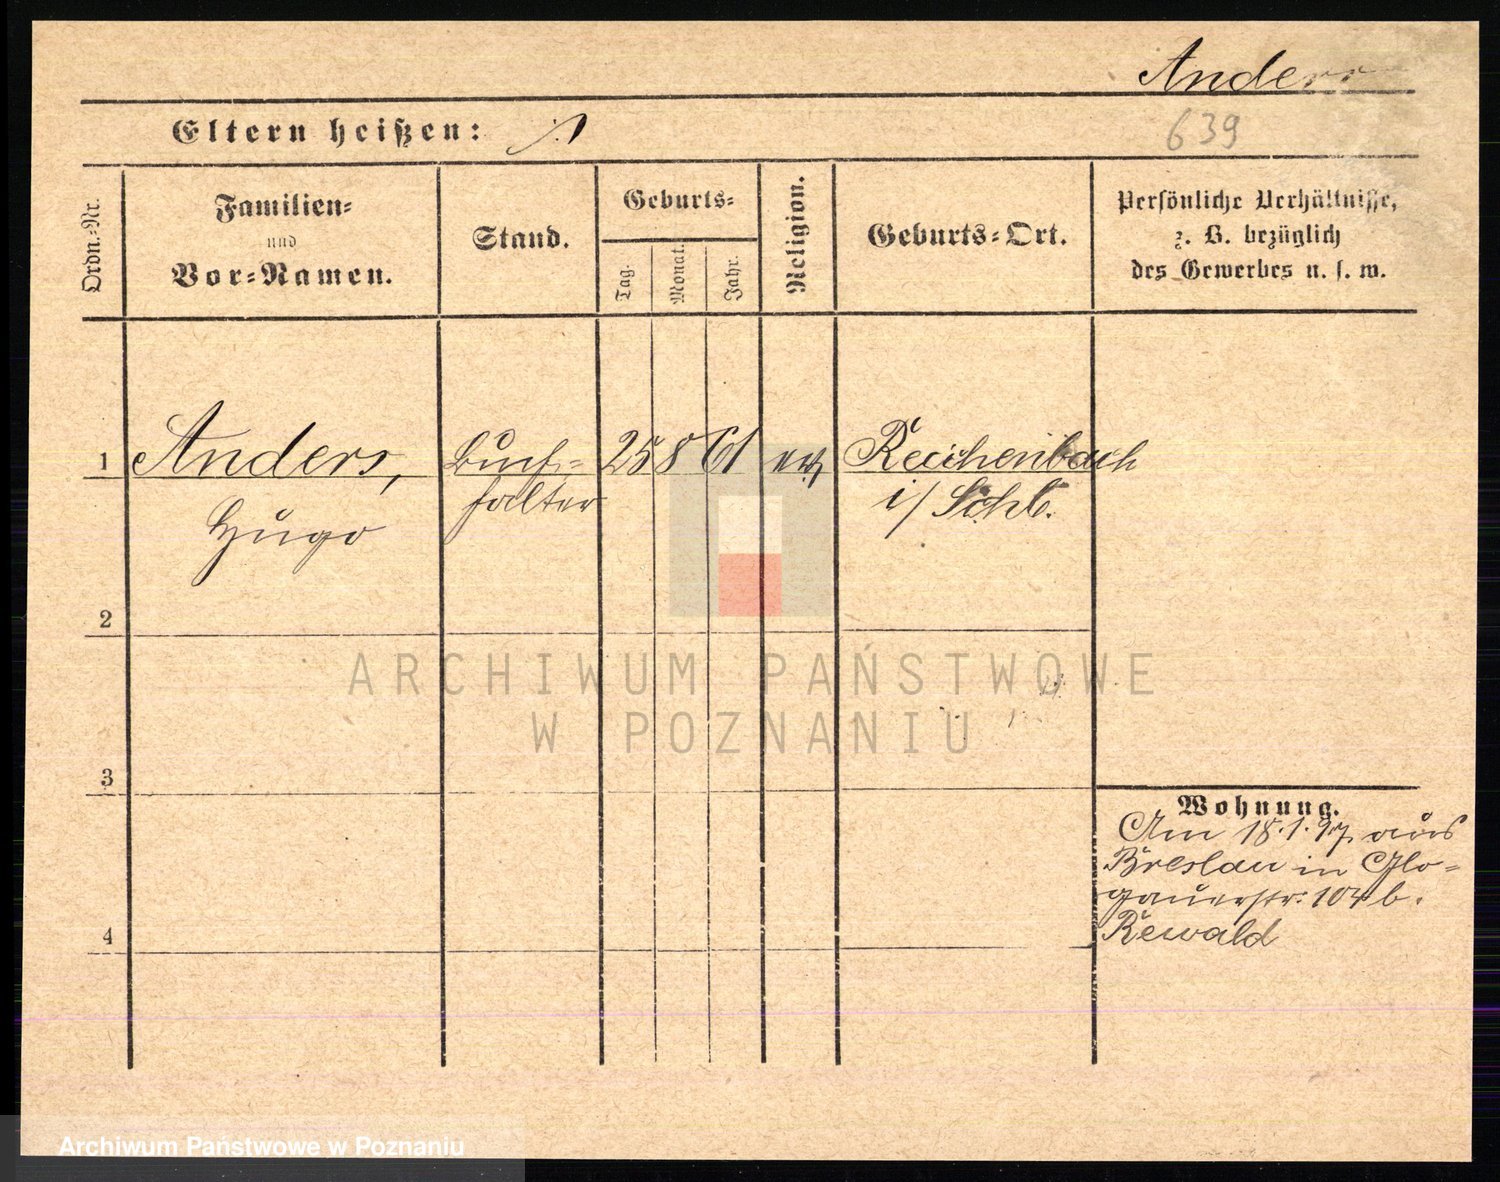 Anders
639
Eltern heißen:
Ordn.-Nr.
Familien-
und
Vor-Namen.
Stand.
Geburts-
Tag.
Monat.
Jahr.
Religion.
Geburts-Ort.
Persönliche Verhältnisse,
z. B. bezüglich
des Gewerbes u. s. w.
1 Anders, Buch- 25 8 61 Reichenbach
Hugo halter i/ Schl.
2
3
4
Wohnung.
Am 18.1.97 aus
Breslau in Glo-
gauerstr: 104 b.
Rewald
ARCHIWUM PAŃSTWOWE
W POZNANIU
Archiwum Państwowe w Poznaniu